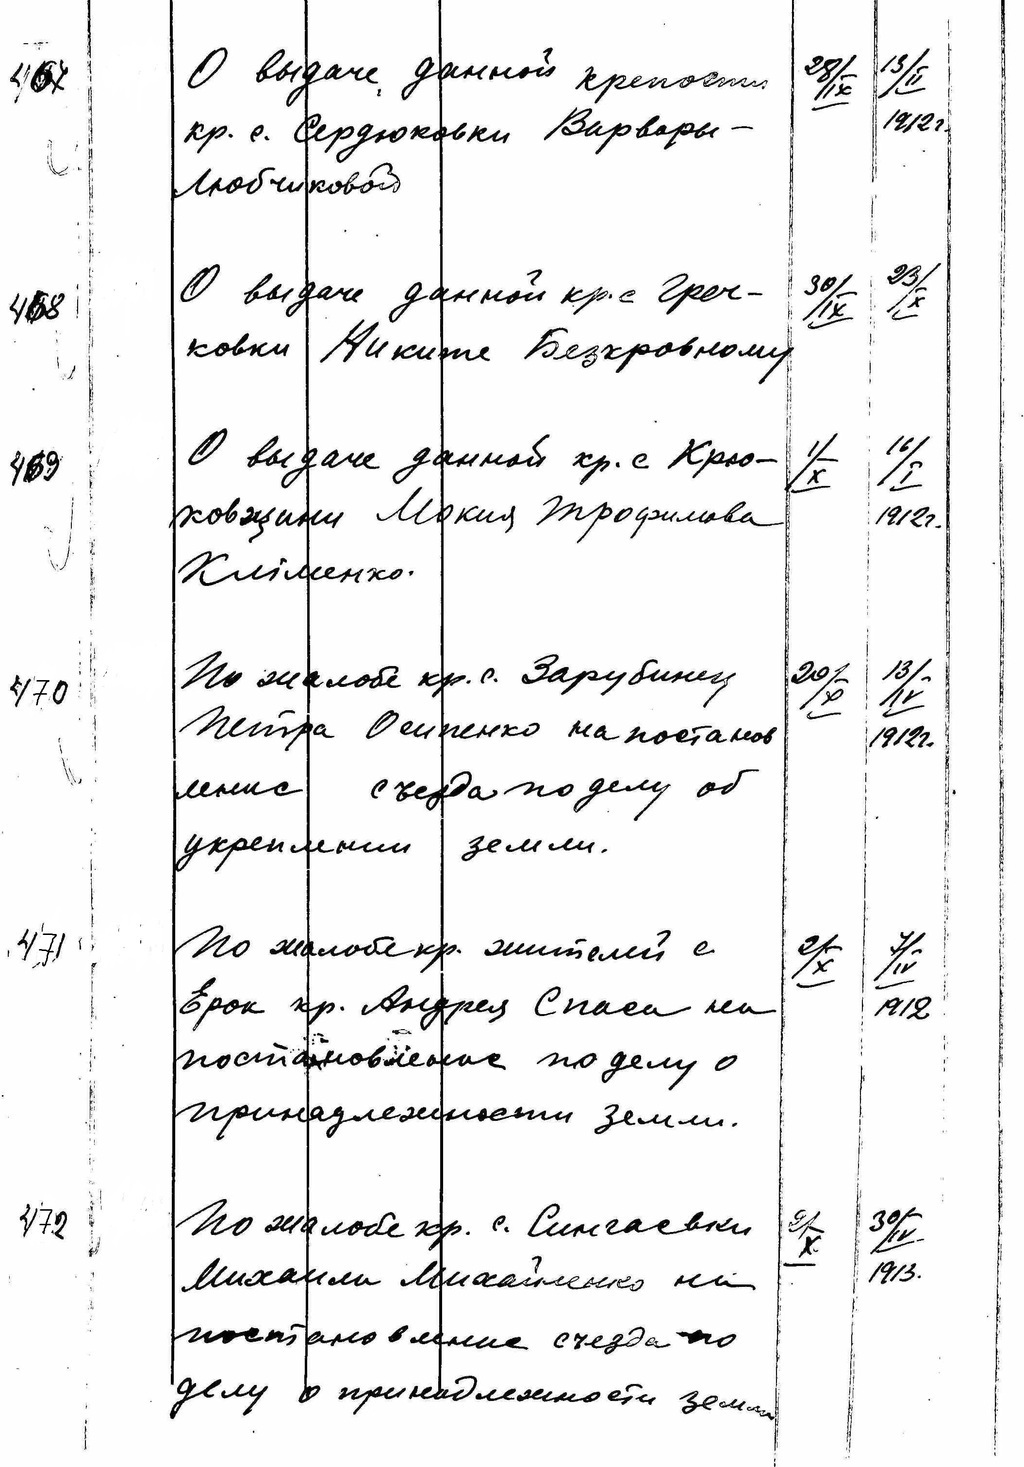 467 О выдаче данной крепости 28/IX 13/II
кр. с. Сердюковки Варвары – 1912г.
Любчиковой
468 О выдаче данной кр. с Греч- 30/IX 23/X
ковки Никите Безкровному
469 О выдаче данной кр. с Крю- 1/X 16/I
ковщини Мокия Трофимова 1912г.
Кліменко.
470 По жалобе кр. с. Зарубинец 20/X 13/IV
Петра Осипенко на постанов 1912г.
ление съезда по делу об
укреплении земли.
471 По жалобе кр. жителей с 2/X 7/IV
Ерок кр. Андрея Спаса на 1912
постановление по делу о
принадлежности земли.
472 По жалобе кр. с. Сингаевки 2/X 30/IV
Михаила Михайленко на 1913.
постановление съезда по
делу о принадлежности земли